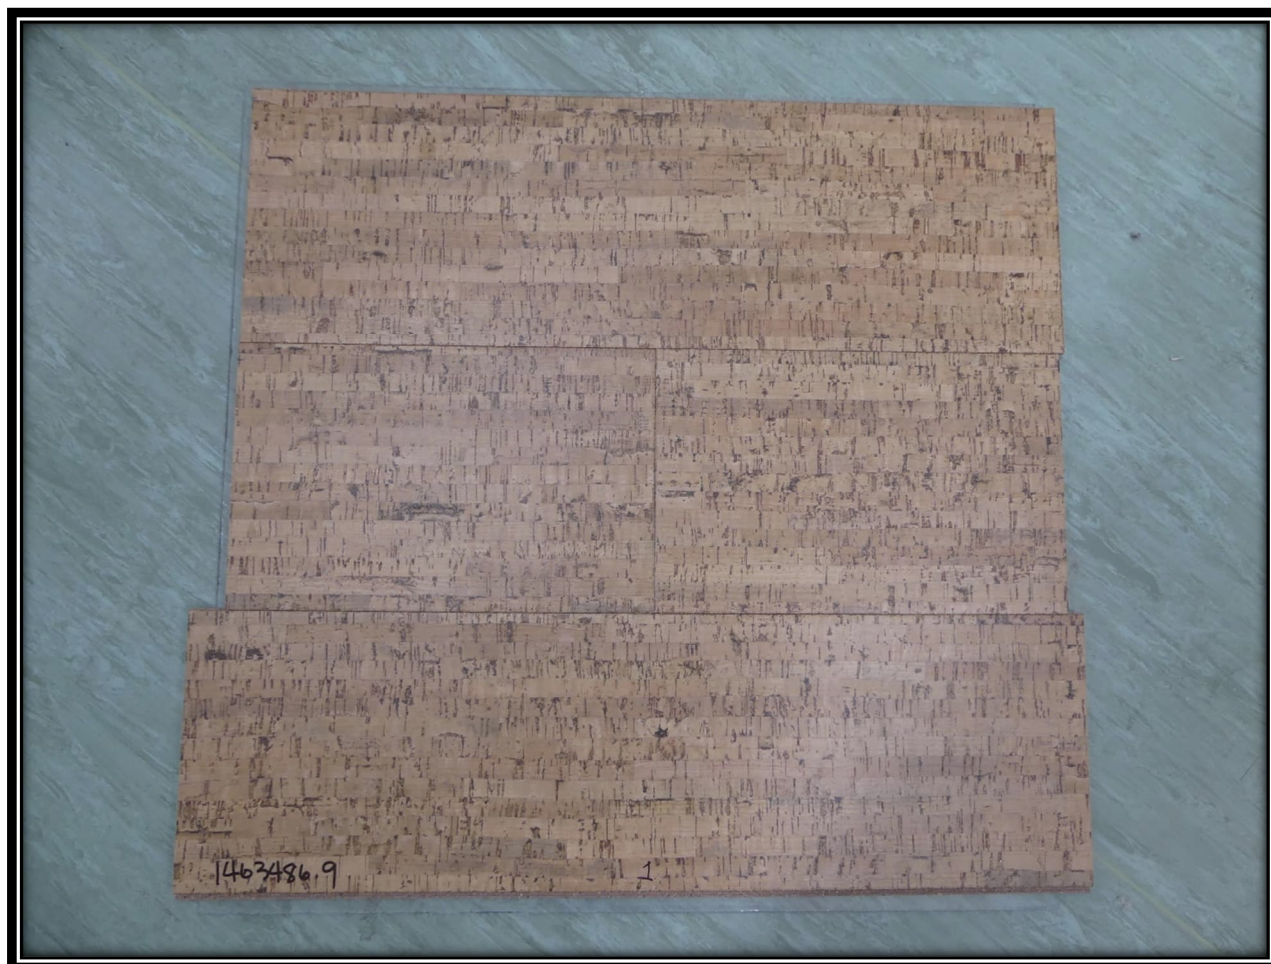 1463486.9 1